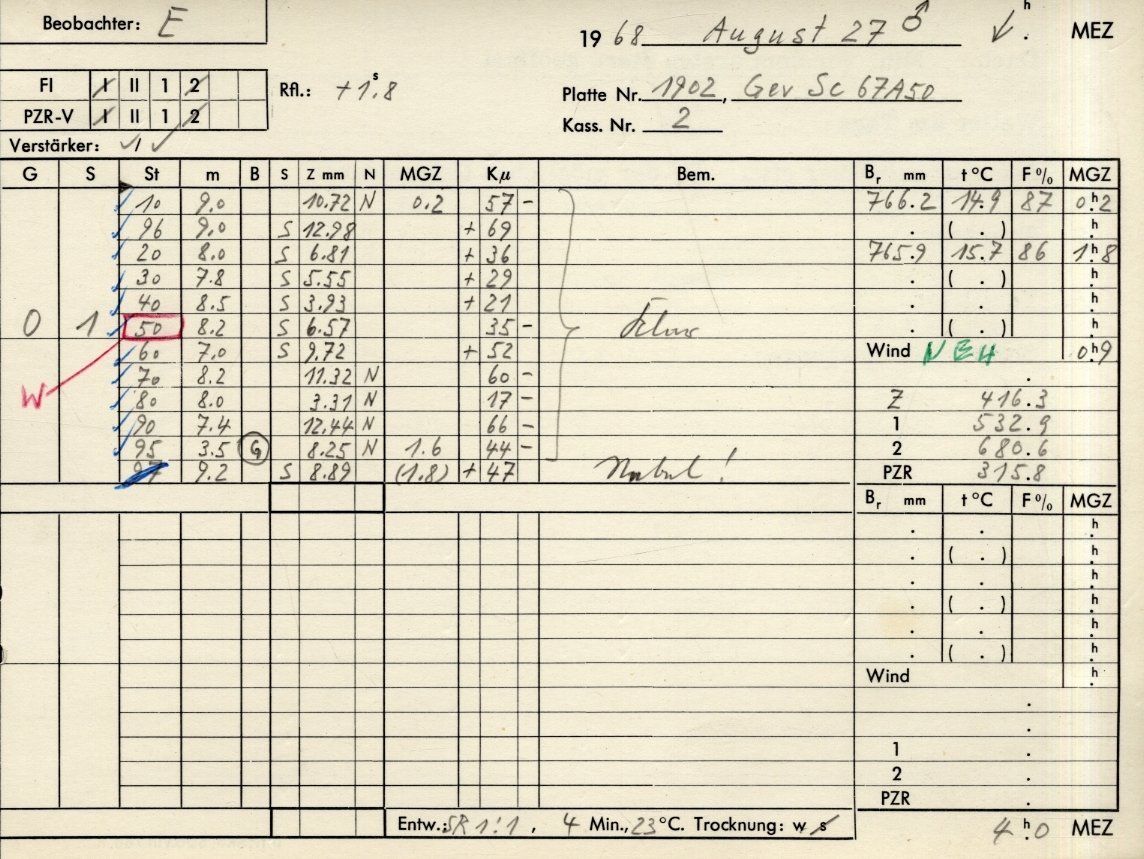 Beobachter: E
19 68 August 27 ♂ h . MEZ
FI I II 1 2 Rfl.: +1ˢ.8
PZR-V I II 1 2
Platte Nr. 1902, Gev Sc 67A50
Kass. Nr. 2
Verstärker:
G S St m B S Z mm N MGZ Kμ Bem. Bᵣ mm t °C F % MGZ
10 9.0 10.72 N 0.2 57 - 766.2 14.9 87 0ʰ.2
96 9.0 S 12.98 + 69 . ( . ) h .
20 8.0 S 6.81 + 36 765.9 15.7 86 1ʰ.8
30 7.8 S 5.55 + 29 . ( . ) h .
40 8.5 S 3.93 + 21 . . h .
0 1 50 8.2 S 6.57 35 - . ( . ) h .
60 7.0 S 9.72 + 52 Wind 0ʰ.9
W 70 8.2 11.32 N 60 - .
80 8.0 3.31 N 17 - Z 416.3
90 7.4 12.44 N 66 - 1 532.9
95 3.5 G 8.25 N 1.6 44 - 2 680.6
97 9.2 S 8.89 (1.8) + 47 PZR 315.8
Bᵣ mm t °C F % MGZ
. . h .
. ( . ) h .
. . h .
. ( . ) h .
. . h .
. ( . ) h .
Wind h .
.
.
1 .
2 .
PZR .
Entw.: SR 1:1 , 4 Min., 23 °C. Trocknung: w s 4ʰ.0 MEZ